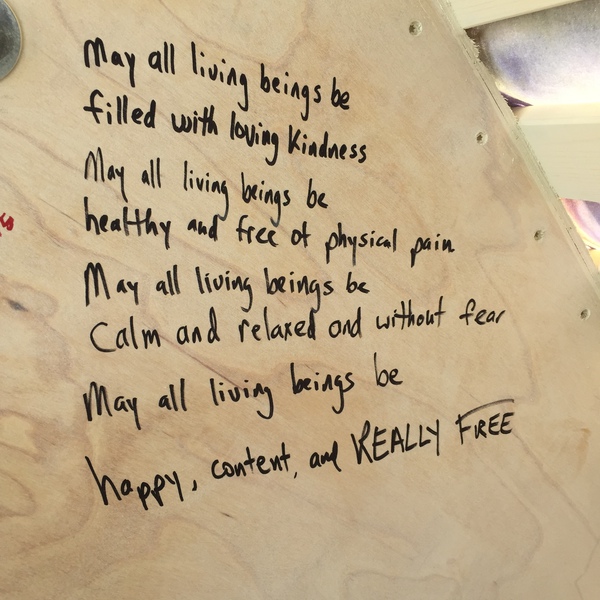 May all living beings be
filled with loving kindness
May all living beings be
healthy and free of physical pain
May all living beings be
Calm and relaxed and without fear
May all living beings be
happy, content, and REALLY FREE